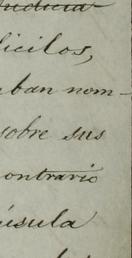 licilos,
ban nom-
sobre sus
contrario
úsula